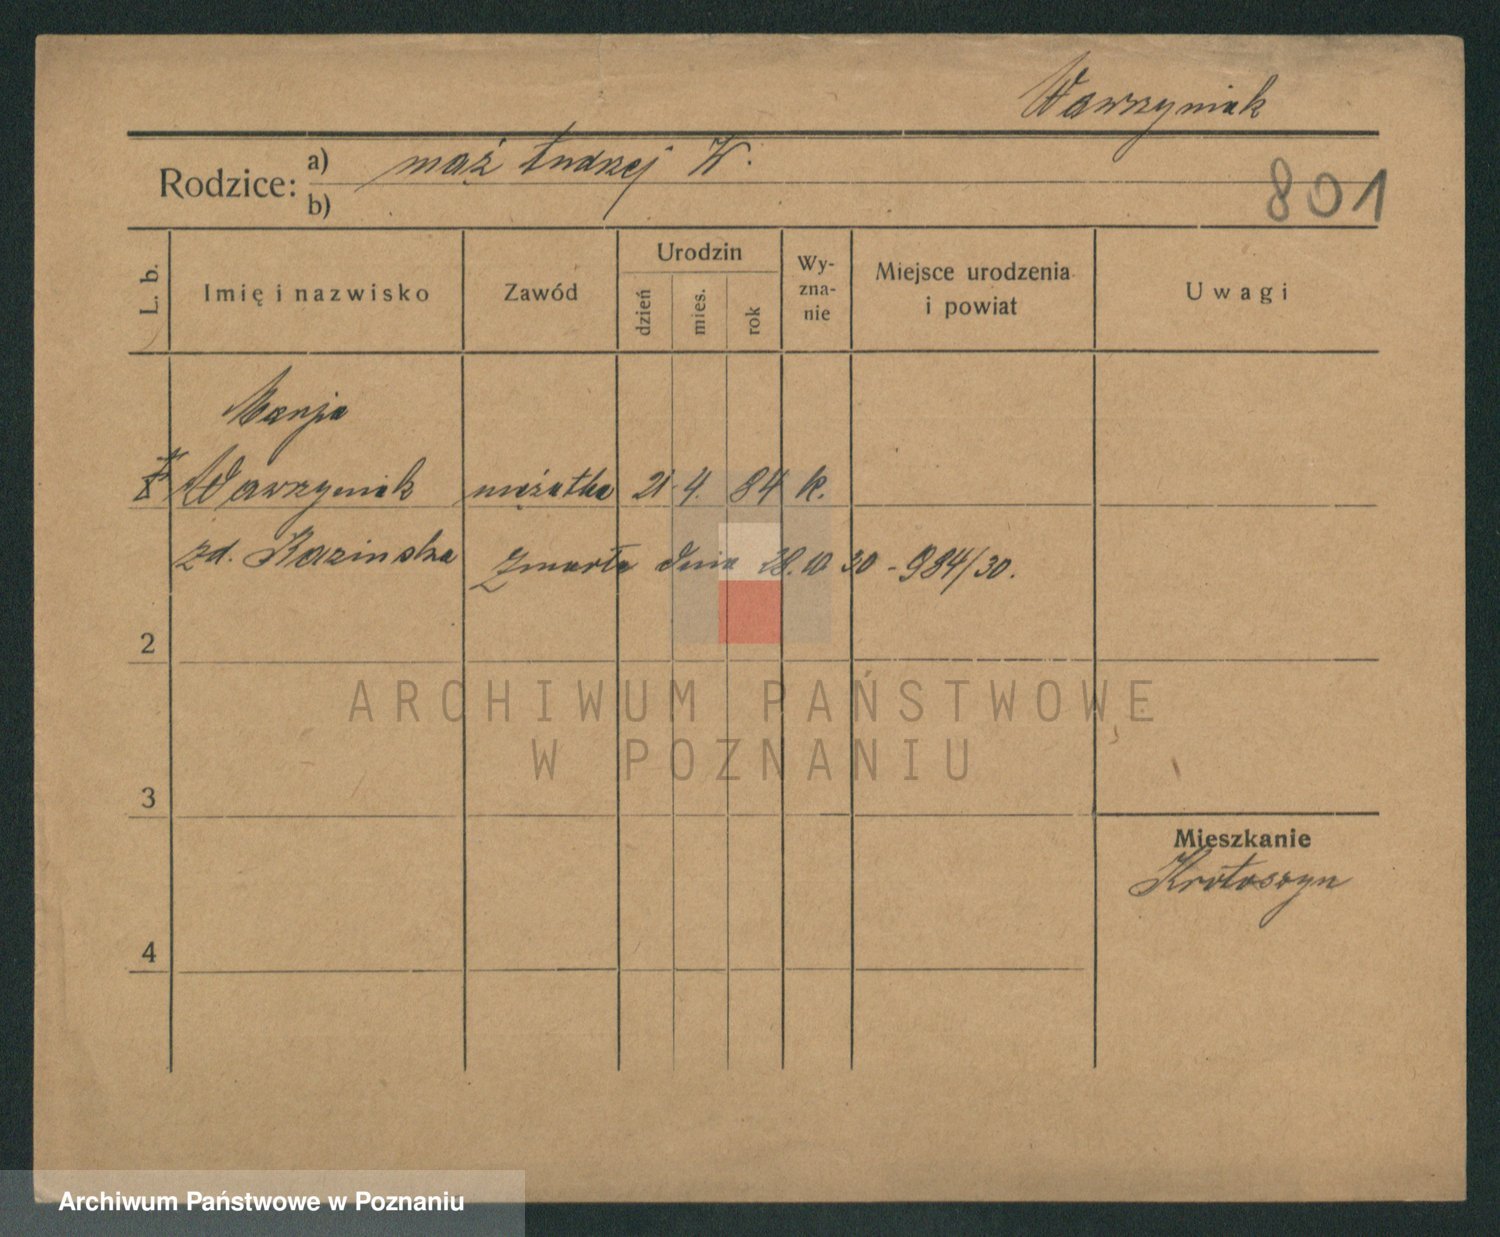 Wawrzyniak
Rodzice: a) mąż Andrzej W.
b)
801
L. b. Imię i nazwisko Zawód Urodzin dzień mies. rok Wy-zna-nie Miejsce urodzenia i powiat Uwagi
Marja
Wawrzyniak mężatka 21 4. 84 k.
zd. Kazinska zmarła dnia 28.10 30 - 984/30.
2
ARCHIWUM PAŃSTWOWE
W POZNANIU
3
Mieszkanie
Krotoszyn
4
Archiwum Państwowe w Poznaniu